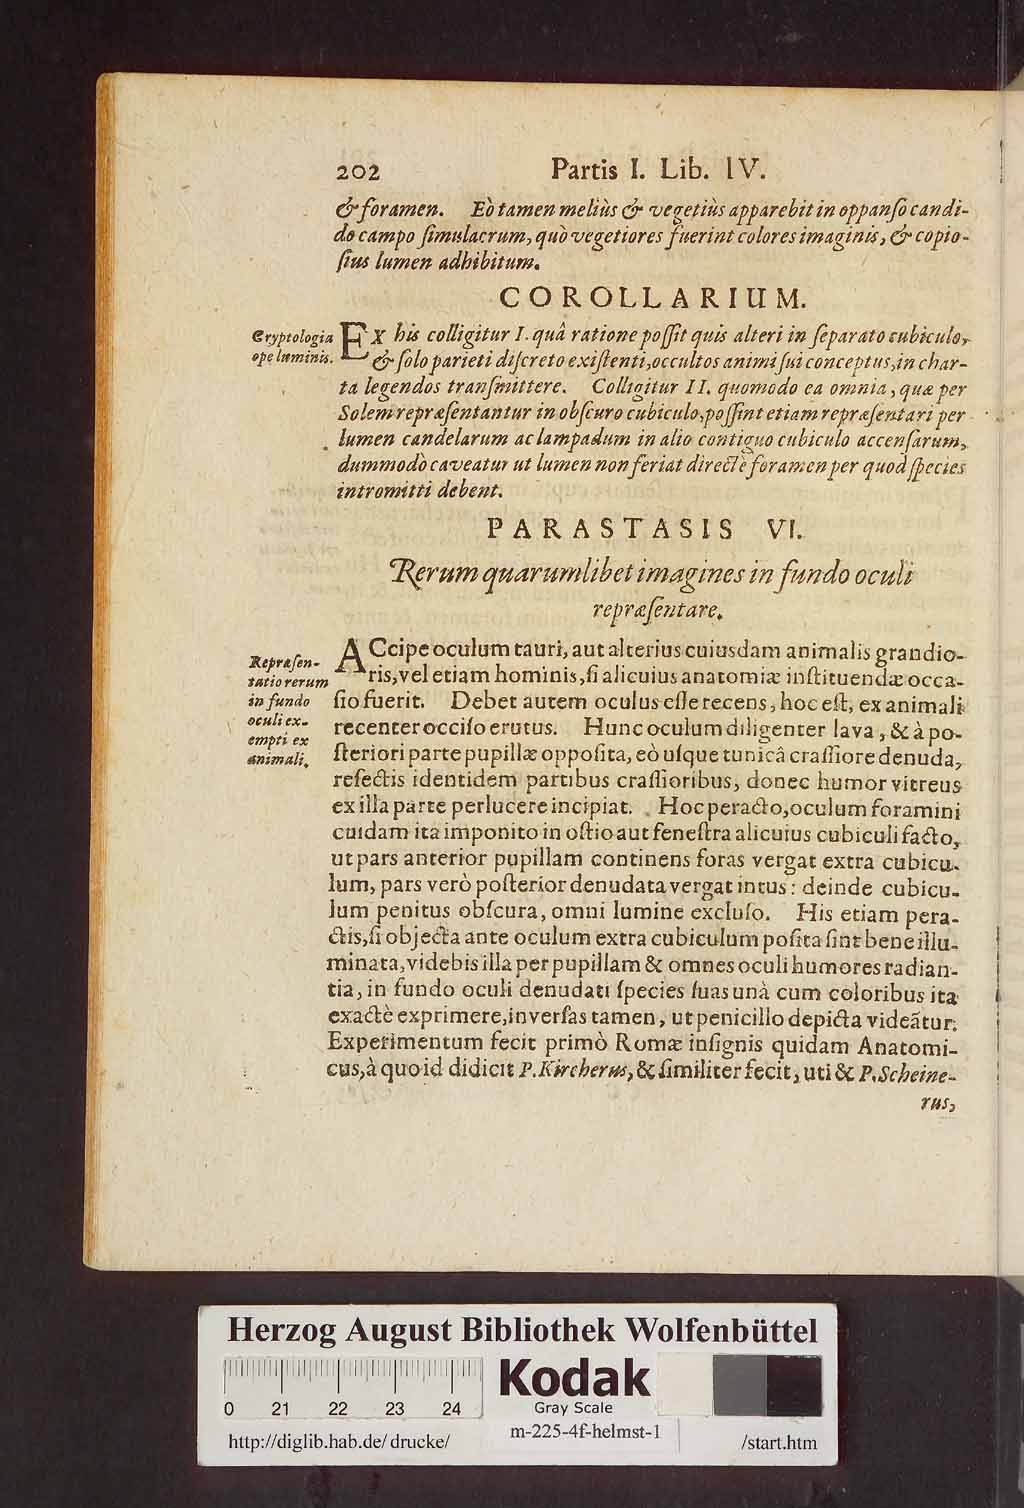 202 Partis I. Lib. IV.
& foramen. Eò tamen meliùs & vegetiùs apparebit in oppanſo candi-
do campo ſimulacrum, quò vegetiores fuerint colores imaginis, & copio-
ſius lumen adhibitum.
COROLLARIUM.
Cryptologia
ope luminis.
EX his colligitur I. quâ ratione poſſit quis alteri in ſeparato cubiculo,
& ſolo parieti diſcreto exiſtenti, occultos animi ſui conceptus, in char-
ta legendos tranſmittere. Colligitur II. quomodo ea omnia, quæ per
Solem repræſentantur in obſcuro cubiculo, poſſint etiam repræſentari per
lumen candelarum ac lampadum in alio contiguo cubiculo accenſarum,
dummodò caveatur ut lumen non feriat directè foramen per quod ſpecies
intromitti debent.
PARASTASIS VI.
Rerum quarumlibet imagines in fundo oculi
repræſentare.
Repræſen-
tatio rerum
in fundo
oculi ex-
empti ex
animali.
ACcipe oculum tauri, aut alterius cuiusdam animalis grandio-
ris, vel etiam hominis, ſi alicuius anatomiæ inſtituendæ occa-
ſio fuerit. Debet autem oculus eſſe recens, hoc eſt, ex animali
recenter occiſo erutus. Hunc oculum diligenter lava, & à po-
ſteriori parte pupillæ oppoſita, eò uſque tunicâ craſſiore denuda,
reſectis identidem partibus craſſioribus, donec humor vitreus
ex illa parte perlucere incipiat. Hoc peracto, oculum foramini
cuidam ita imponito in oſtio aut feneſtra alicuius cubiculi facto,
ut pars anterior pupillam continens foras vergat extra cubicu-
lum, pars verò poſterior denudata vergat intus: deinde cubicu-
lum penitus obſcura, omni lumine excluſo. His etiam pera-
ctis, ſi objecta ante oculum extra cubiculum poſita ſint bene illu-
minata, videbis illa per pupillam & omnes oculi humores radian-
tia, in fundo oculi denudati ſpecies ſuas unà cum coloribus ita
exactè exprimere, inverſas tamen, ut penicillo depicta videãtur.
Experimentum fecit primò Romæ inſignis quidam Anatomi-
cus, à quo id didicit P. Kircherus, & ſimiliter fecit, uti & P. Scheine-
rus,
Herzog August Bibliothek Wolfenbüttel
0 21 22 23 24
Kodak
Gray Scale
http://diglib.hab.de/drucke/ m-225-4f-helmst-1 /start.htm